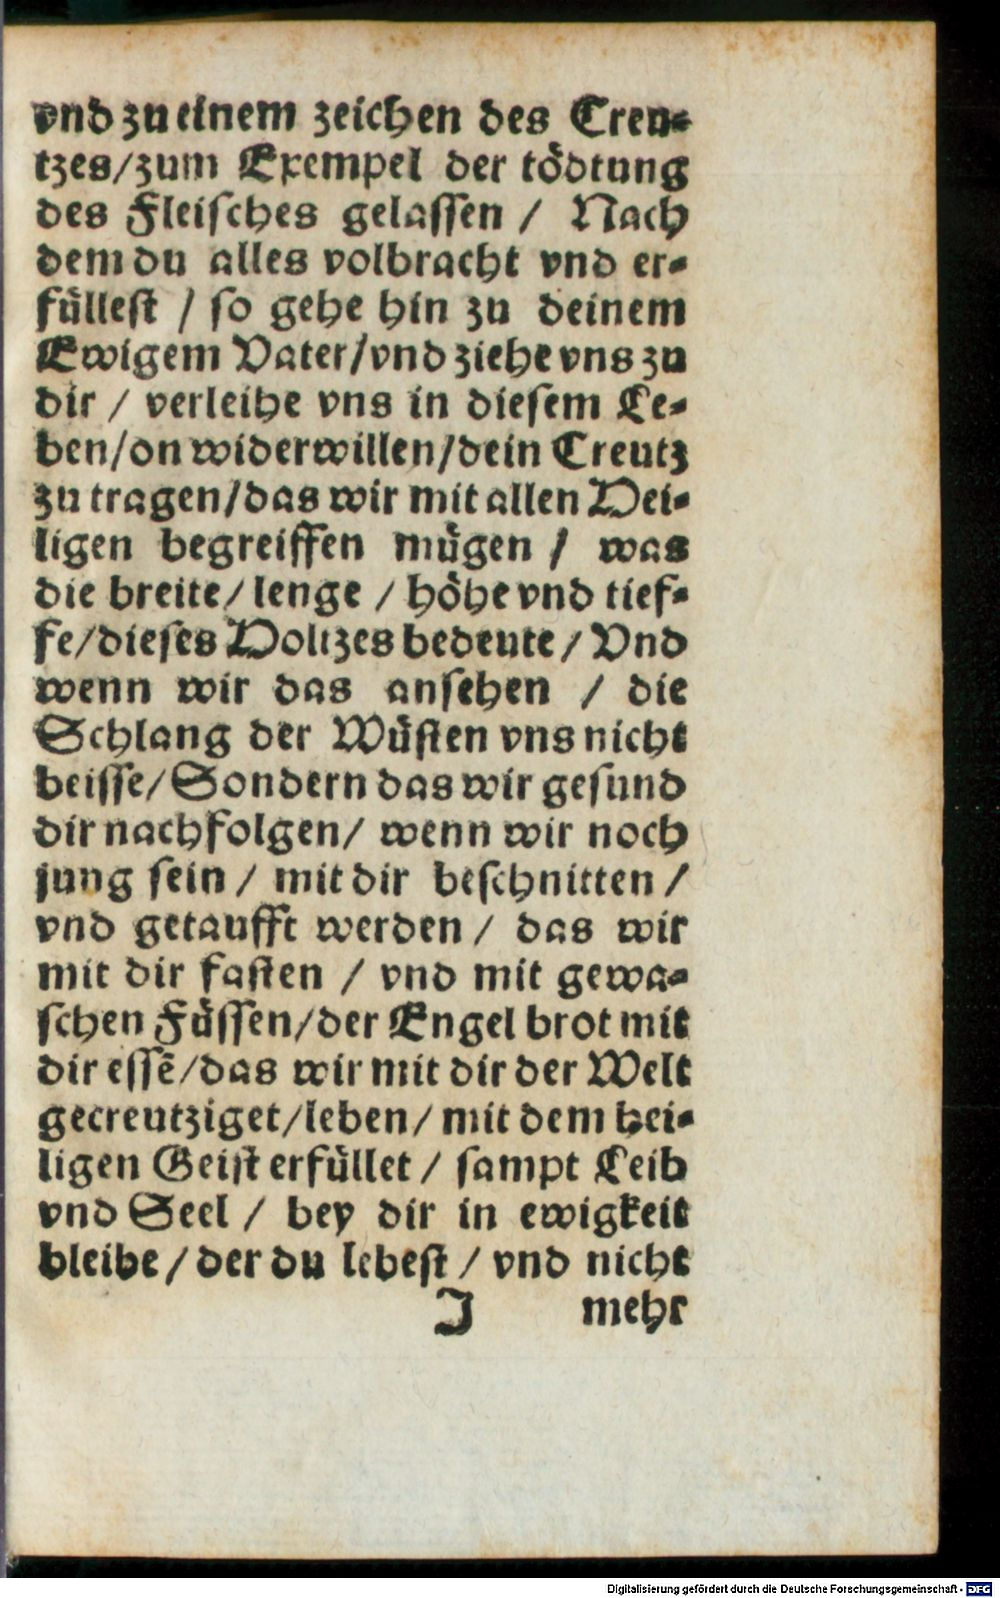 vnd zu einem zeichen des Creu-
tzes/zum Exempel der tödtung
des Fleisches gelassen / Nach
dem du alles volbracht vnd er-
füllest / so gehe hin zu deinem
Ewigem Vater/vnd ziehe vns zu
dir / verleihe vns in diesem Le-
ben/on widerwillen/dein Creutz
zu tragen/das wir mit allen Hei-
ligen begreiffen mügen / was
die breite/lenge / höhe vnd tief-
fe/dieses Holtzes bedeute / Vnd
wenn wir das ansehen / die
Schlang der Wüsten vns nicht
beisse/Sondern das wir gesund
dir nachfolgen/ wenn wir noch
jung sein / mit dir beschnitten /
vnd getaufft werden / das wir
mit dir fasten / vnd mit gewa-
schen Füssen/der Engel brot mit
dir essē/das wir mit dir der Welt
gecreutziget/leben/ mit dem hei-
ligen Geist erfüllet / sampt Leib
vnd Seel / bey dir in ewigkeit
bleibe/der du lebest / vnd nicht
J mehr
Digitalisierung gefördert durch die Deutsche Forschungsgemeinschaft - DFG